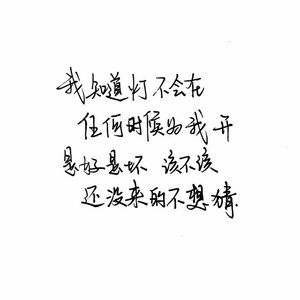 我知道灯不会在
任何时候为我开
是好是坏 该不该
还没来的不想猜